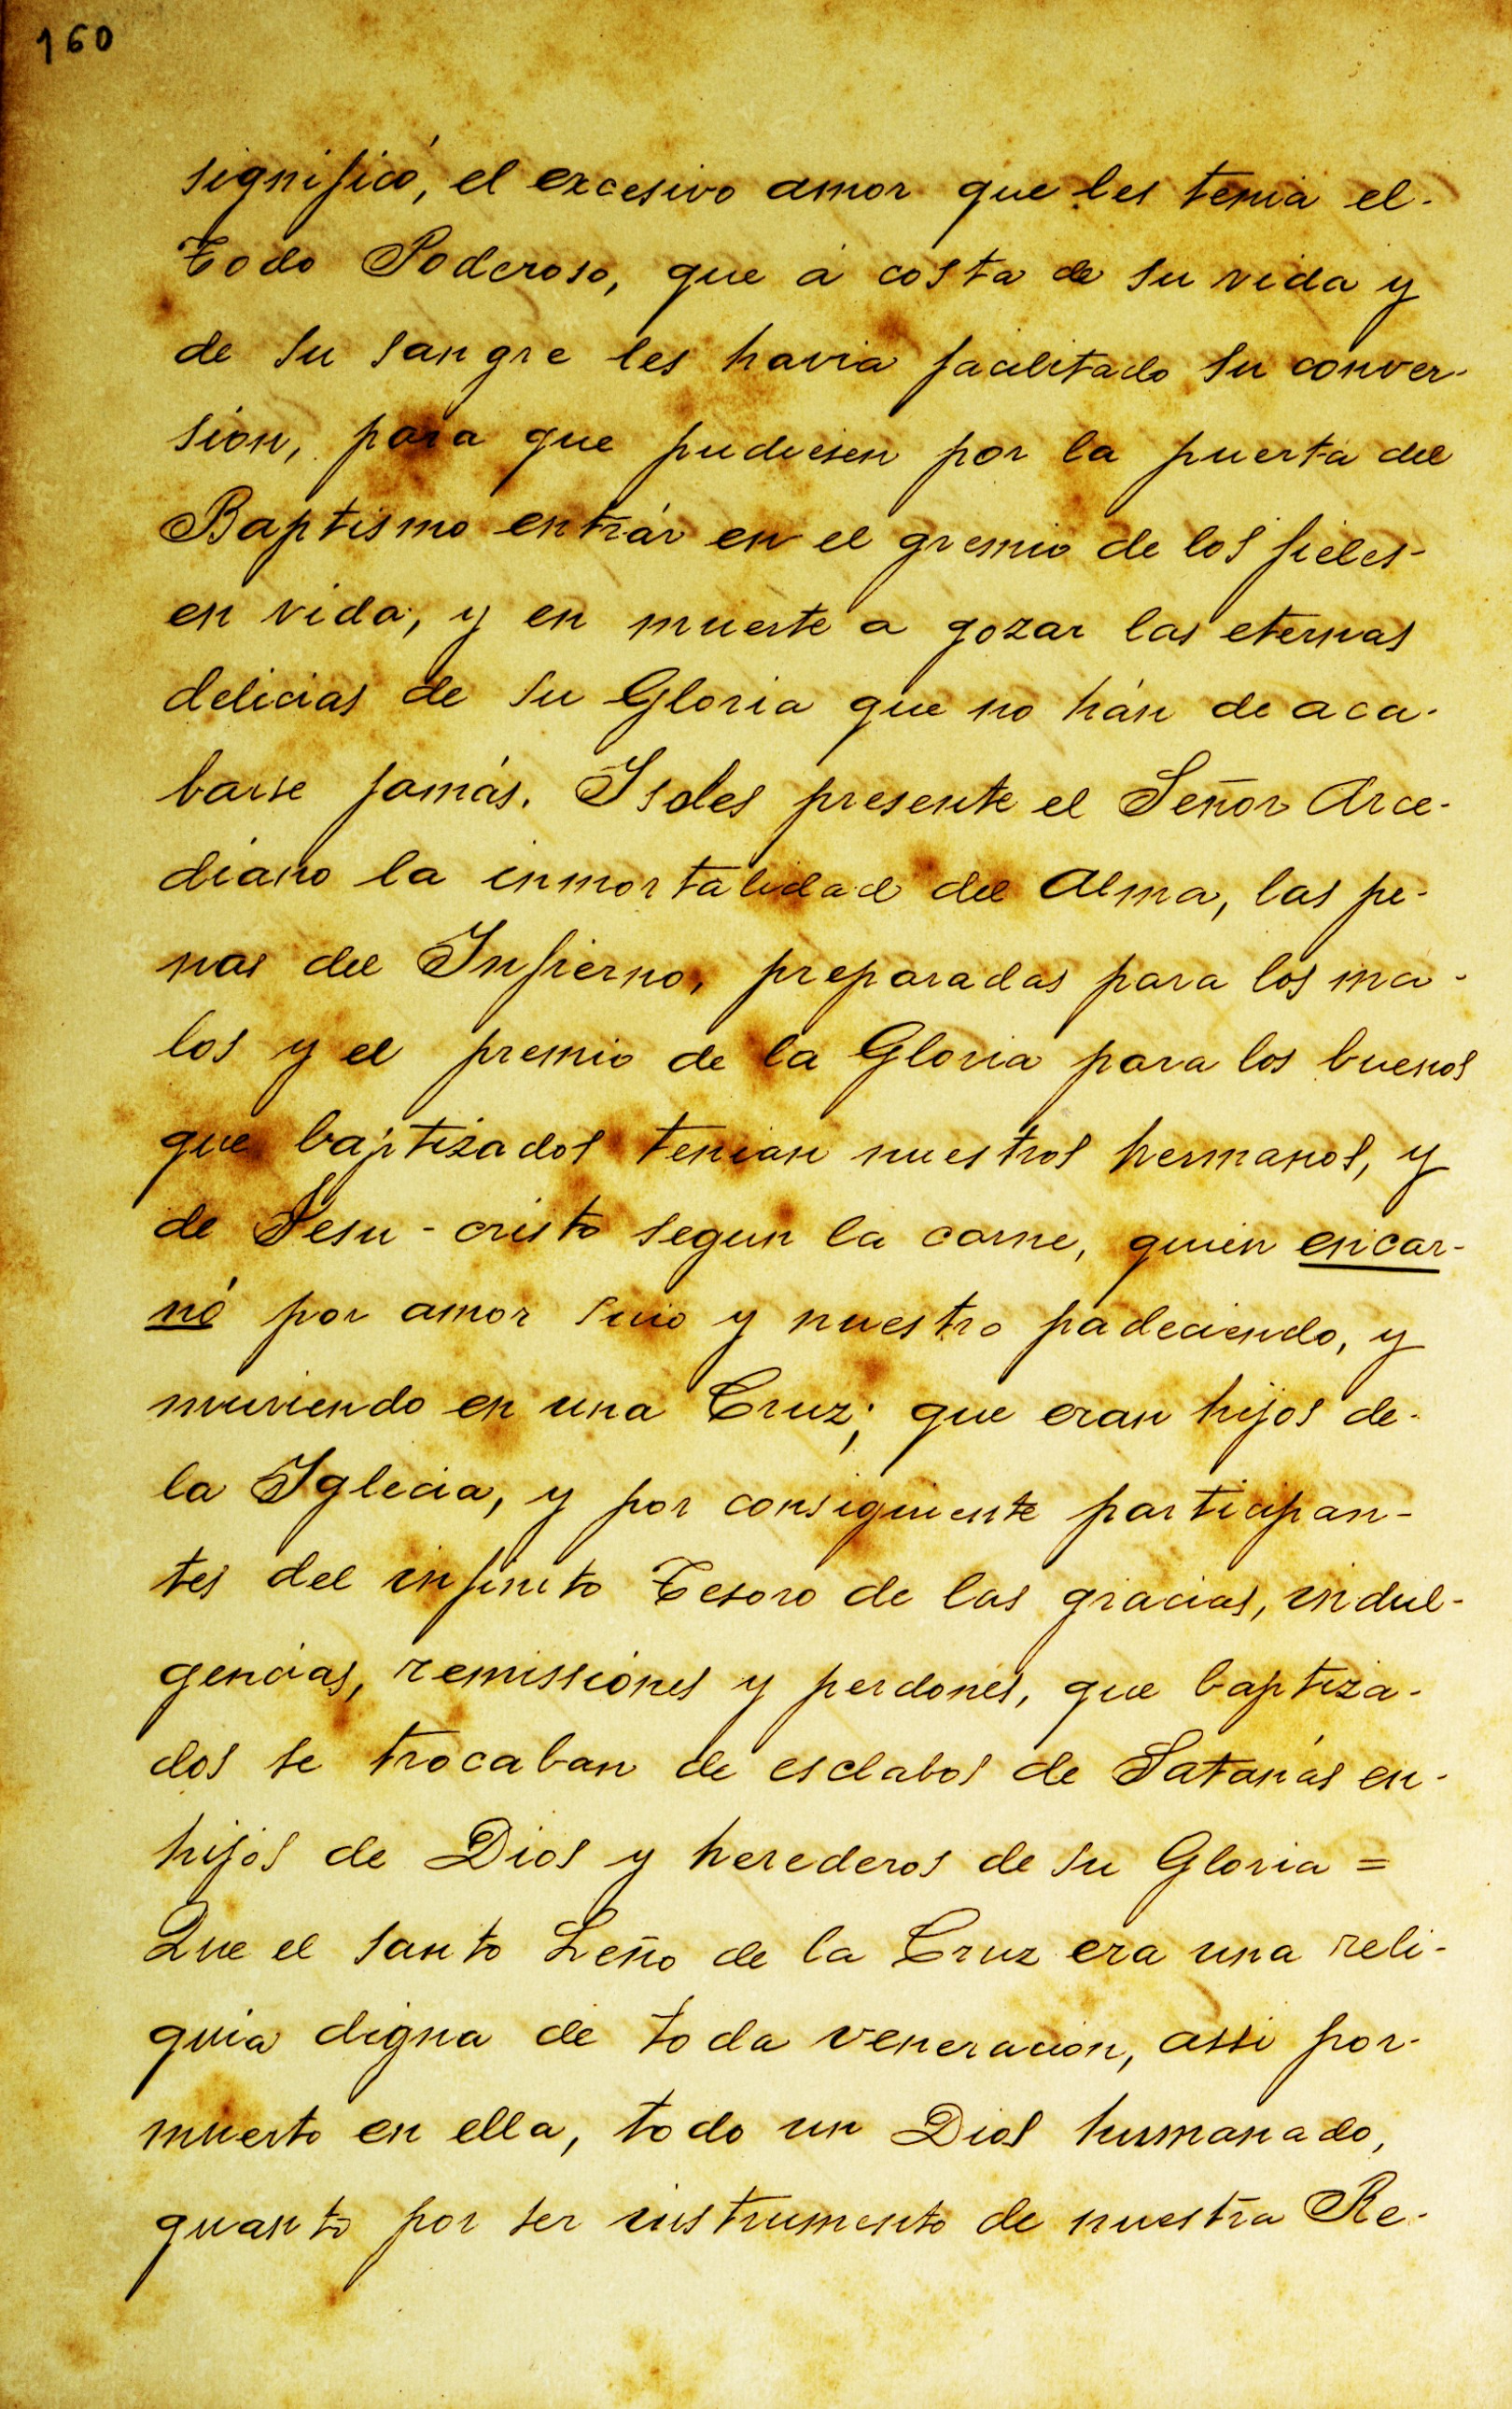 160
significó, el excesivo amor que les tenia el-
Todo Poderoso, que á costa de su vida y
de su sangre les havia facilitado su conver-
sion, para que pudiesen por la puerta del
Baptismo entrár en el gremio de los fieles-
en vida, y en muerte a gozar las eternas
delicias de su Gloria que no hán de aca-
barse jamás. Isoles presente el Señor Arce-
diano la inmortalidad del Alma, las pe-
nas del Infierno, preparadas para los ma-
los y el premio de la Gloria para los buenos
que baptizados tenian nuestros hermanos, y
de Jesu-cristo segun la carne, quien encar-
nó por amor suio y nuestro padeciendo, y
muriendo en una Cruz; que eran hijos de-
la Iglecia, y por consiguiente participan-
tes del infinito Tesoro de las gracias, indul-
gencias, remissiones y perdones, que baptiza-
dos se trocaban de esclabos de Satanás en-
hijos de Dios y herederos de su Gloria =
Que el santo Leño de la Cruz era una reli-
quia digna de toda veneracion, assi por-
muerto en ella, todo un Dios humanado,
quanto por ser instrumento de nuestra Re-